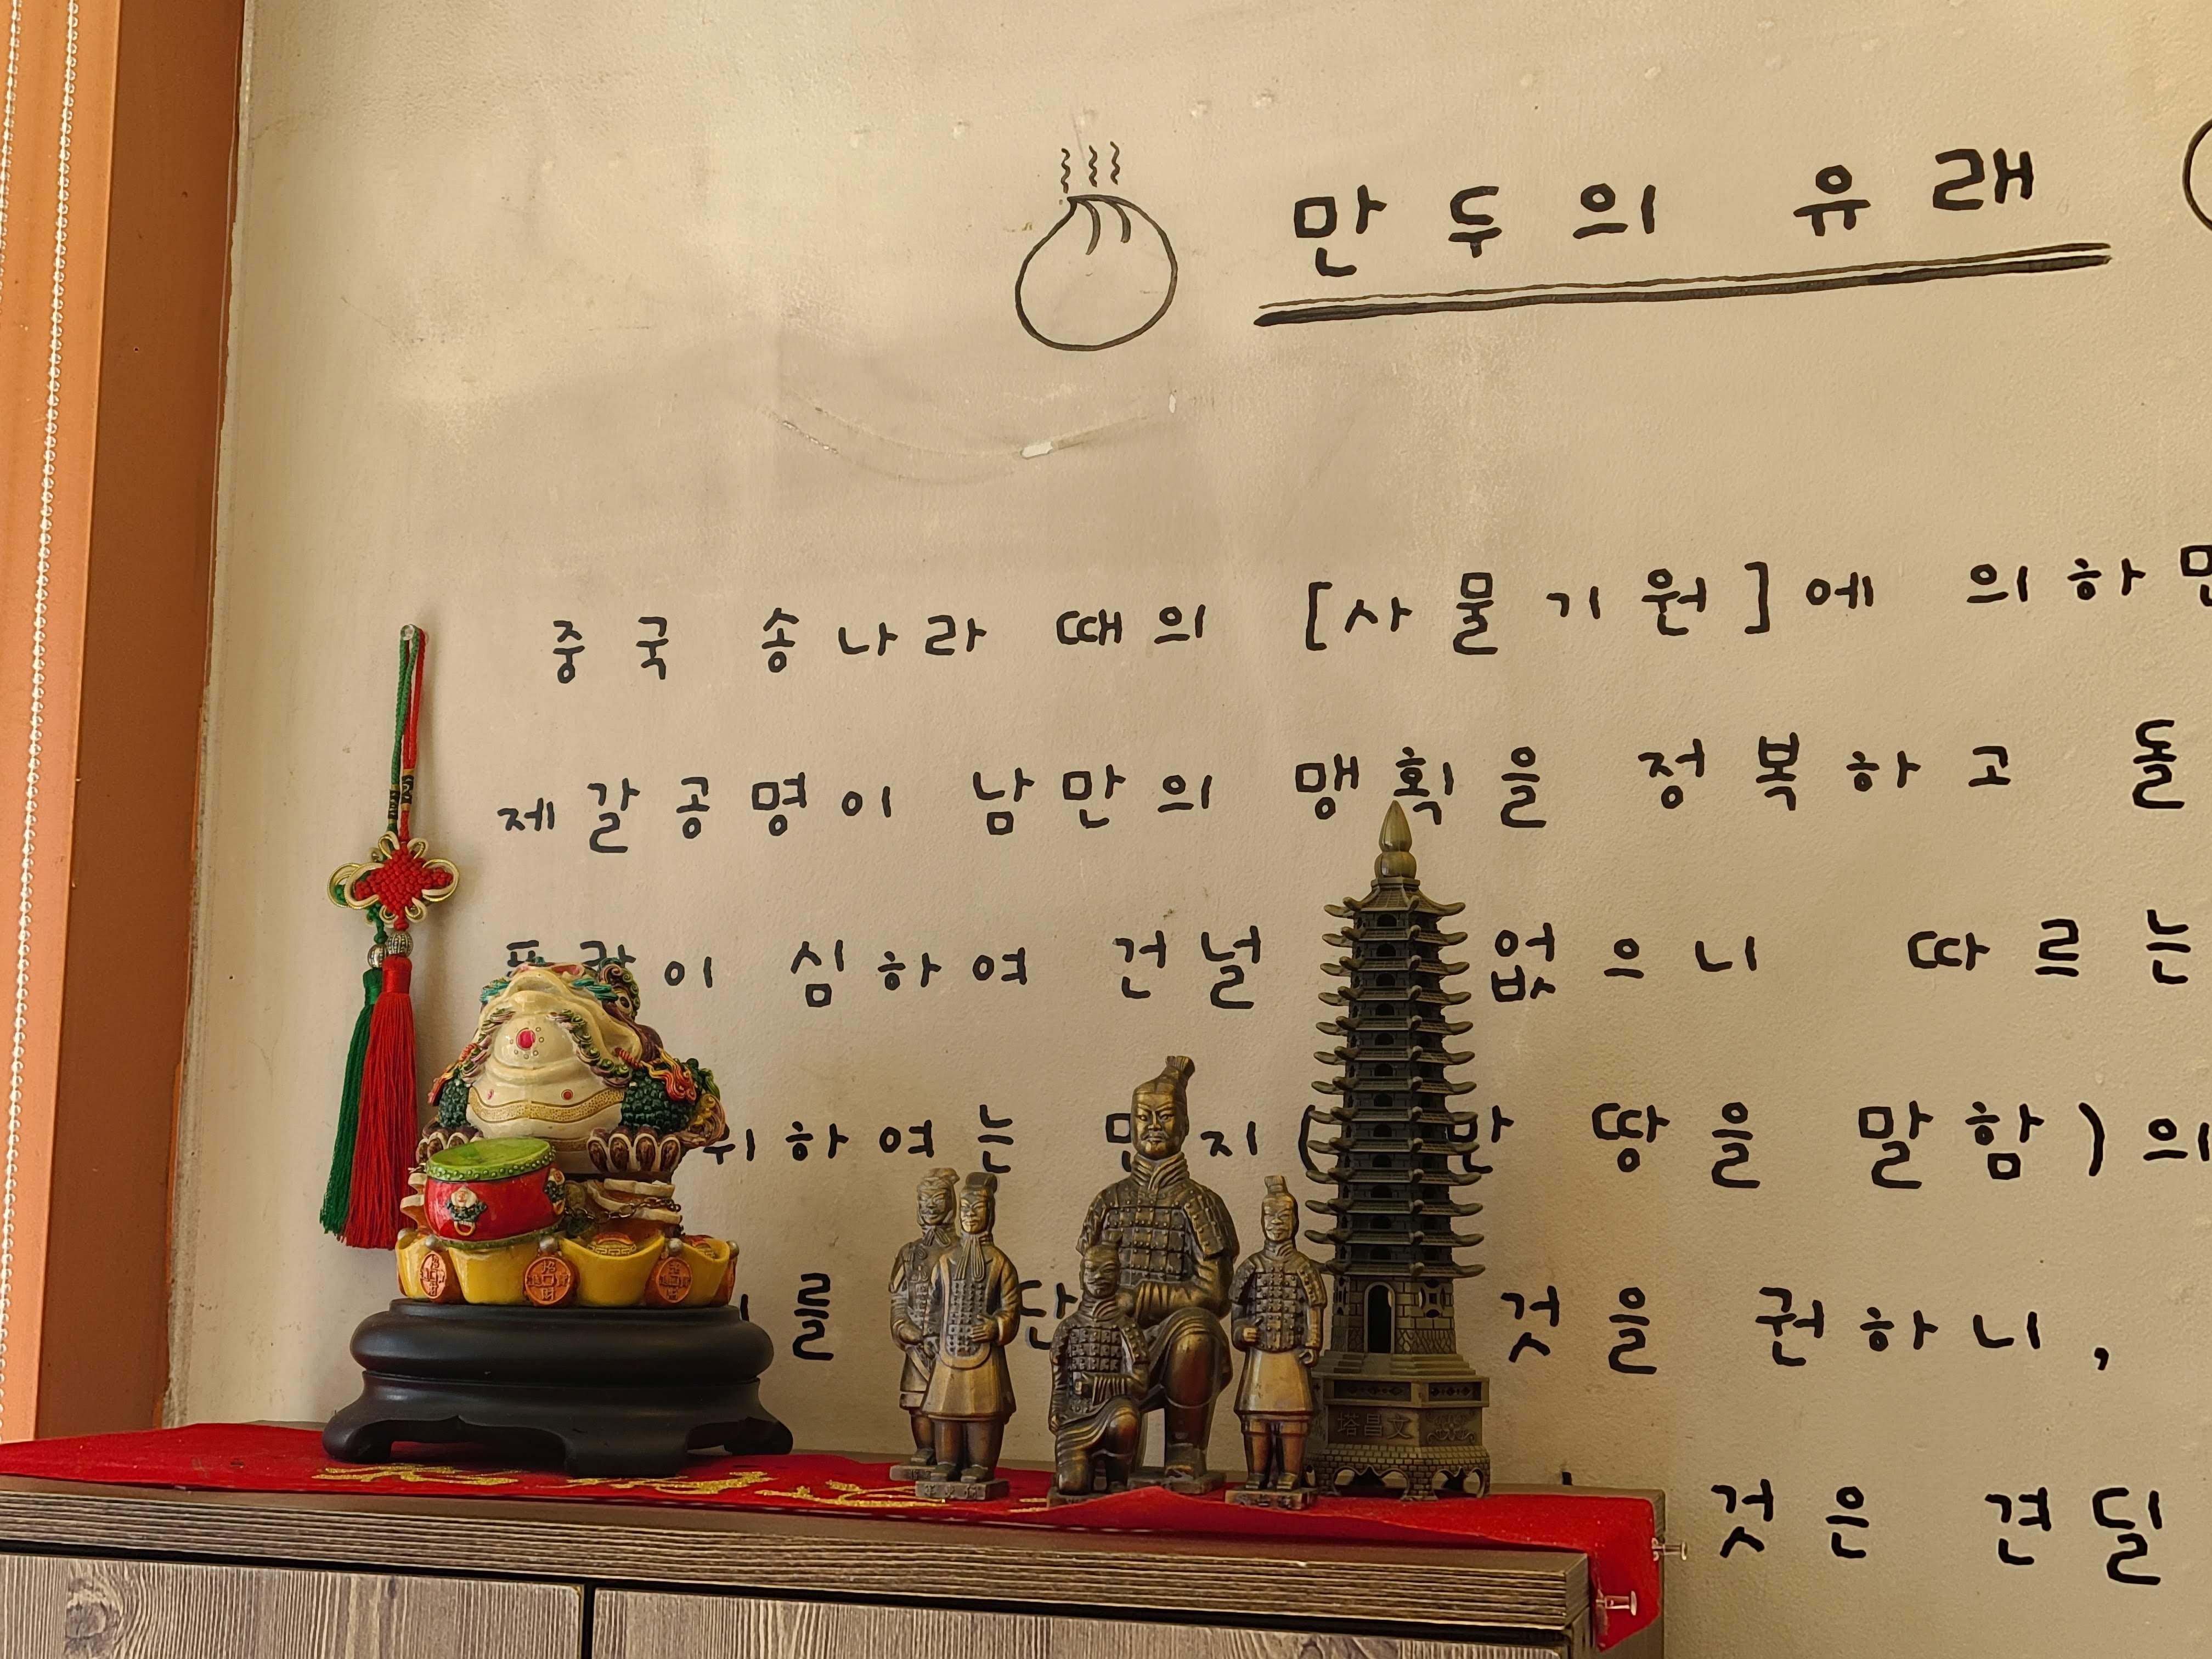 만두의 유래
중국 송나라 때의 [사물기원]에 의하면
제갈공명이 남만의 맹획을 정복하고 돌
심하여 건널 없으니 따르는
위하여는 만지( 만 땅을 말함)의
를 것을 권하니,
것은 견딜
塔昌文